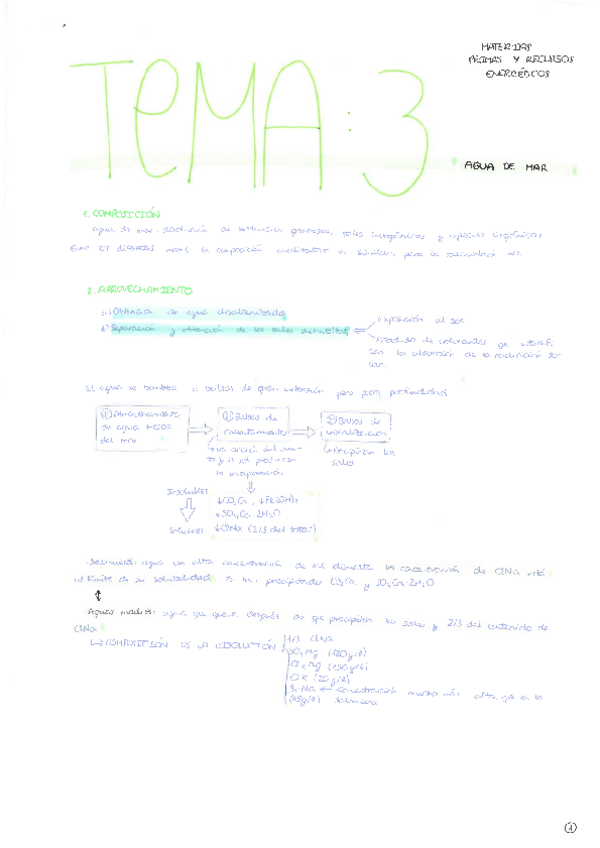 MATERIAS
PRIMAS Y RECURSOS
ENERGÉTICOS
TEMA: 3
AGUA DE MAR
1. COMPOSICIÓN
Agua de mar: disolución de sustancias gaseosas, sales inorgánicas y especies orgánicas
mares la composición cualitativa es similar, pero la
2. APROVECHAMIENTO
a) Obtención de agua desalinizada
b) Separación y obtención de las sales disueltas
exposición al sol
de colorantes que
can la absorción de la radiación so-
lar.
El agua se bombea a balsas de gran extensión pero poca profundidad
① Almacenamiento
de agua
del mar
② Balsas de
calentamiento
③ Balsas de
cristalización
por acción del
y el sol
la evaporación
precipitan las
sales
Insolubles
Solubles
↓CO₃Ca, ↓Fe(OH)₃
↓SO₄Ca·2H₂O
↓ClNa (2/3 del total)
Salmuera: agua con alta concentración de sal disuelta. La concentración de ClNa está
al límite de su solubilidad. Se han precipitado CO₃Ca y SO₄Ca·2H₂O
Aguas madres: agua que queda después de que precipiten las sales y 2/3 del contenido de
ClNa
COMPOSICIÓN DE LA DISOLUCIÓN
1/3 ClNa
SO₄Mg (120g/l)
Cl₂Mg (150g/l)
ClK (20g/l)
BrNa ← concentración mucho más alta que en la
salmuera
①